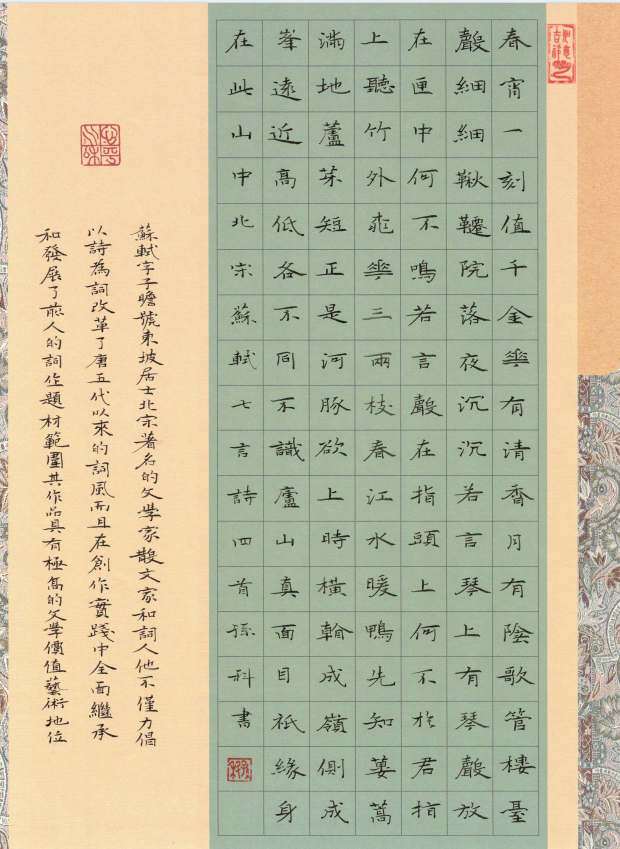 春宵一刻值千金華有清香月有陰歌管樓臺
聲細細鞦韆院落夜沉沉若言琴上有琴聲放
在匣中何不鳴若言聲在指頭上何不於君指
上聽竹外桃華三兩枝春江水暖鴨先知蔞蒿
滿地蘆芽短正是河豚欲上時橫看成嶺側成
峯遠近高低各不同不識廬山真面目祇緣身
在此山中北宋蘇軾七言詩四首孫科書
蘇軾字子瞻號東坡居士北宋著名的文學家散文家和詞人他不僅力倡
以詩為詞改革了唐五代以來的詞風而且在創作實踐中全面繼承
和發展了前人的詞作題材範圍其作品具有極高的文學價值藝術地位